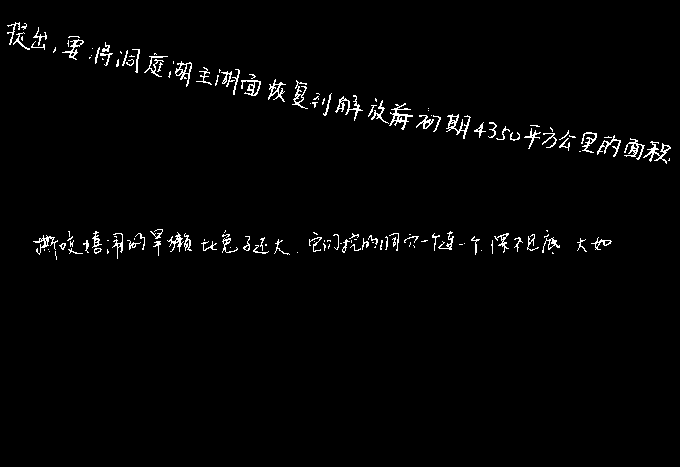 提出,要将洞庭湖主湖面恢复到解放前初期4350平方公里的面积
撕咬嬉闹的旱獭比兔子还大.它们挖的洞穴一个连一个,深不见底 大如